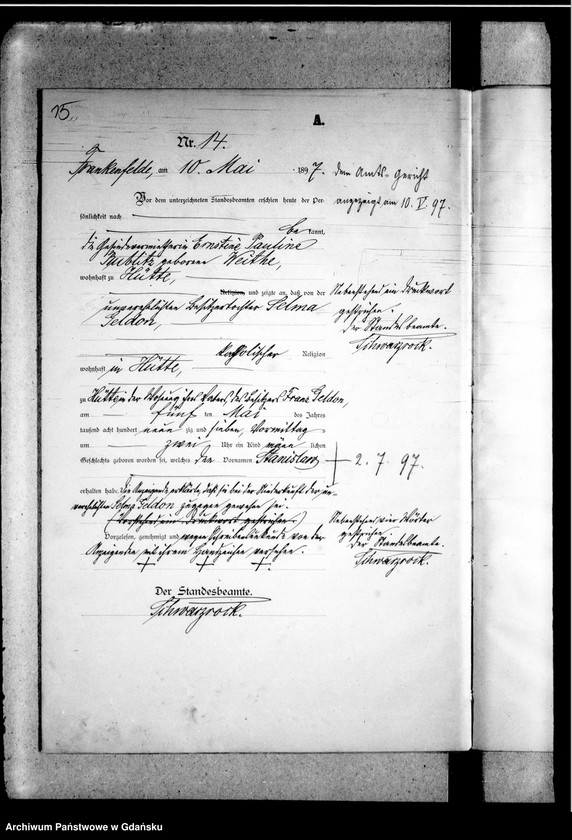 15.
A.
Nr. 14.
Frankenfelde, am 10. Mai 1897.
Vor dem unterzeichneten Standesbeamten erschien heute der Per-
sönlichkeit nach
be kannt,
die Gesindevermietherin Ernstine Pauline
geborene Weithe,
wohnhaft zu Hütte,
Religion, und zeigte an, daß von der
unverehelichten Besitzertochter Selma
Geldon,
katholischer Religion
wohnhaft in Hütte,
zu Hütte in der Wohnung ihres Vaters, des Besitzers Franz Geldon,
am fünf ten Mai des Jahres
tausend acht hundert neun zig und sieben, Vormittag s
um zwei Uhr ein Kind männ lichen
Geschlechts geboren worden sei, welches den Vornamen Stanislaus
erhalten habe. Die Anzeigende erklärte, daß sie bei der Niederkunft der un-
verehelichten Selma Geldon zugegen gewesen sei.
(Vorstehend ein Druckwort gestrichen.)
Vorgelesen, genehmigt und wegen Schreibensunkunde von der
Anzeigende mit ihrem Handzeichen versehen.
+ + +
Der Standesbeamte.
Schwarzrock.
Dem Amts-Gericht
angezeigt am 10. V. 97.
Nebenstehend ein Druckwort
gestrichen.
Der Standesbeamte.
Schwarzrock.
+ 2. 7. 97.
Nebenstehend vier Wörter
gestrichen.
Der Standesbeamte.
Schwarzrock.
Archiwum Państwowe w Gdańsku